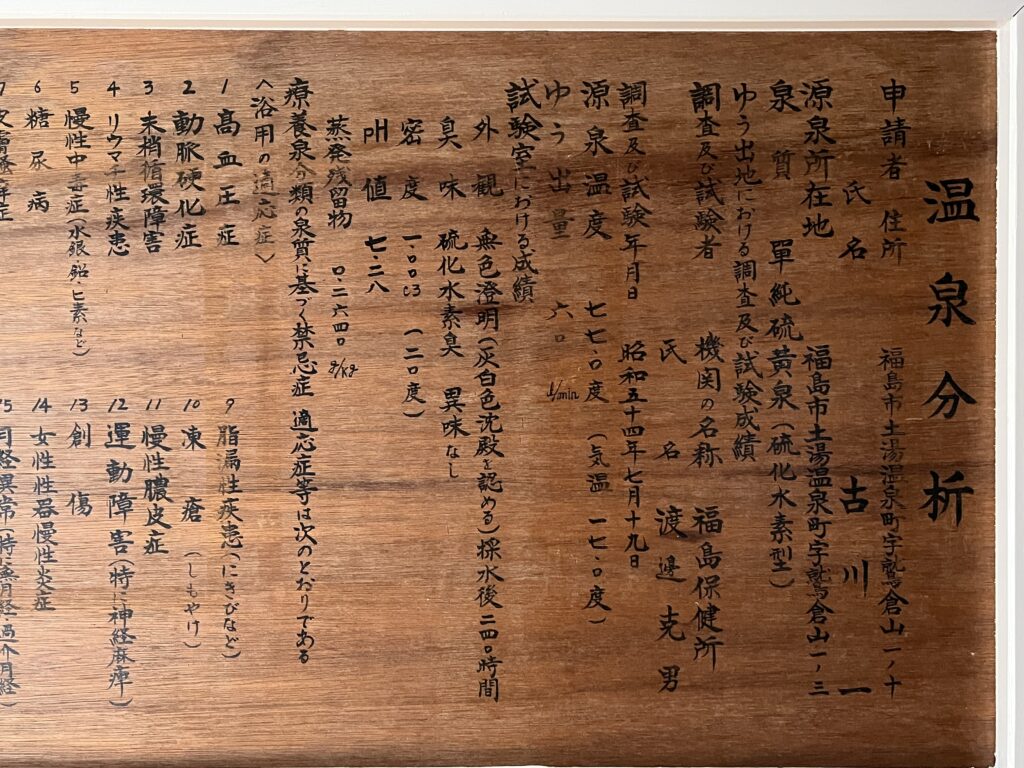 温泉分析
申請者 住所 福島市土湯温泉町字鷲倉山一ノ十
氏名 古川一
源泉所在地 福島市土湯温泉町字鷲倉山一ノ三
泉質 單純硫黄泉(硫化水素型)
ゆう出地における調査及び試験成績
調査及び試験者 機関の名称 福島保健所
氏名 渡邊克男
調査及び試験年月日 昭和五十四年七月十九日
源泉温度 七七.〇度 (気温 一七.〇度)
ゆう出量 六〇 l/min
試験室における成績
外観 無色澄明(灰白色沈殿を認める)採水後二四〇時間
臭味 硫化水素臭 異味なし
密度 一.〇〇〇3 (二〇度)
pH値 七.二八
蒸発残留物 〇.二六四〇 g/kg
療養泉分類の泉質に基づく禁忌症 適応症等は次のとおりである
〈浴用の適応症〉
1 高血圧症
2 動脈硬化症
3 末梢循環障害
4 リウマチ性疾患
5 慢性中毒症(水銀・鉛・ヒ素など)
6 糖尿病
9 脂漏性疾患(にきびなど)
10 凍瘡(しもやけ)
11 慢性膿皮症
12 運動障害(特に神経麻痺)
13 創傷
14 女性性器慢性炎症
15 月経異常(特に無月経・過少月経)